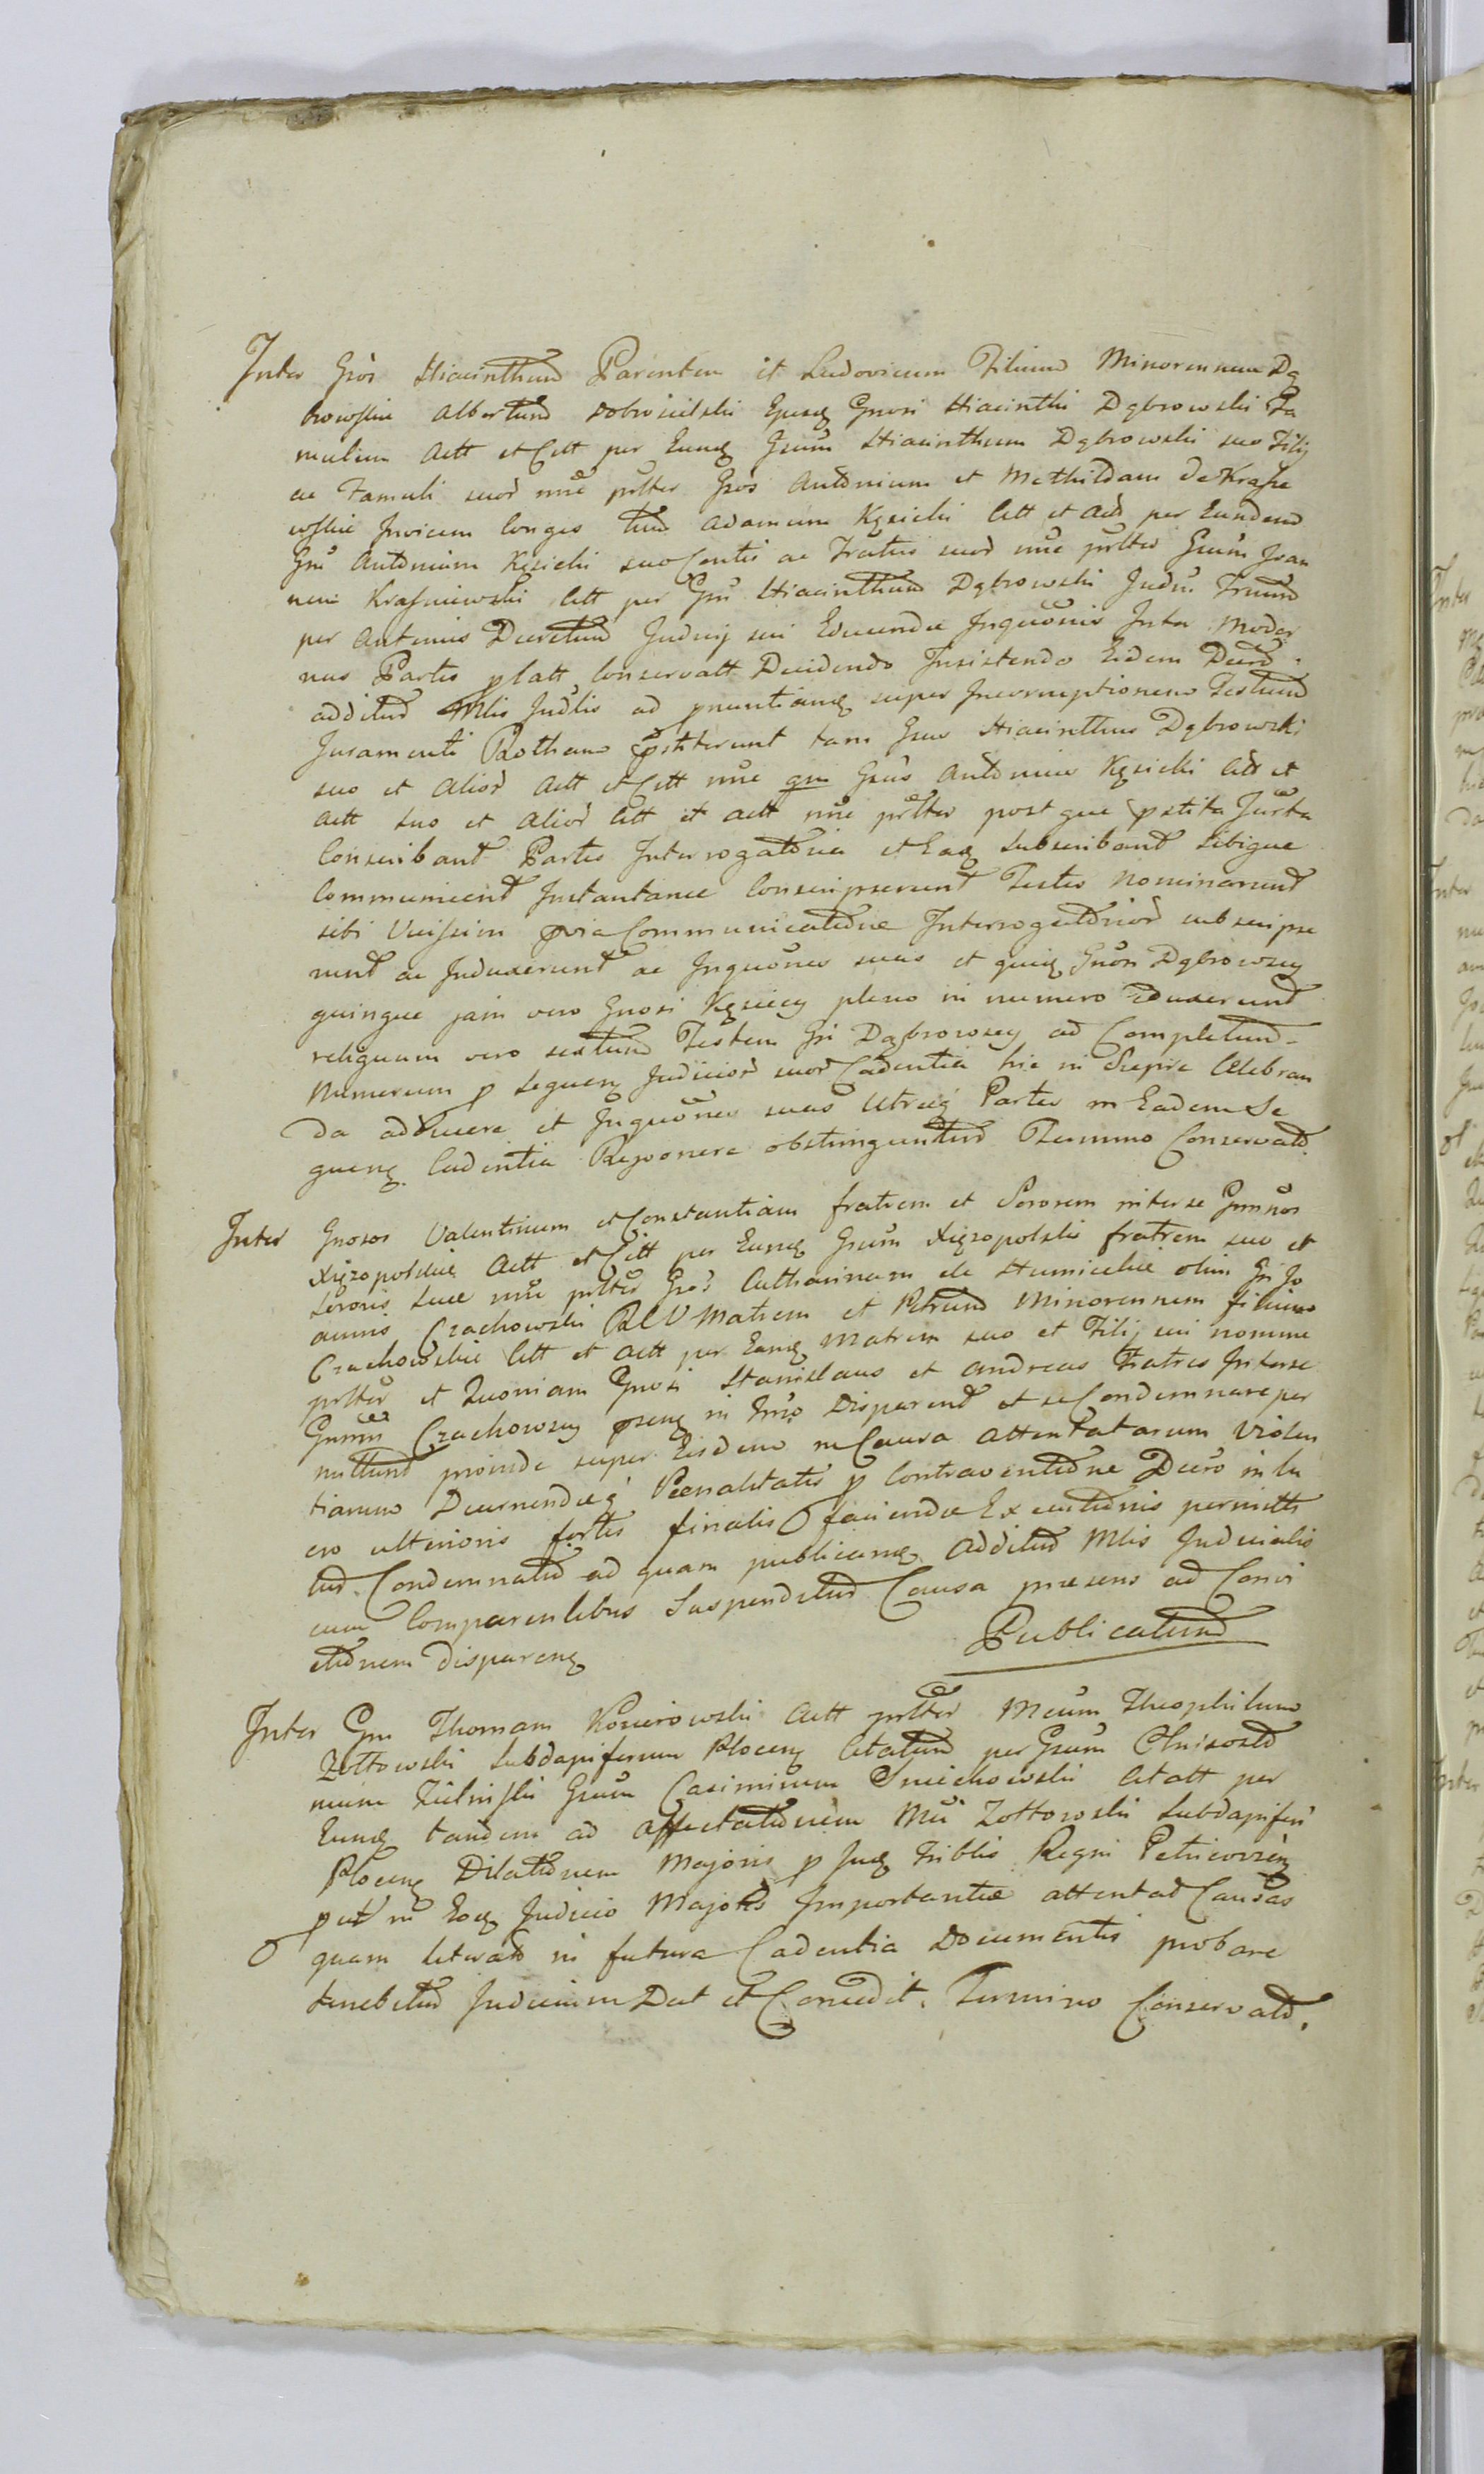 Inter Gsos Hiacinthum Parentem et Ludovicum Filium Minorennem Dą
browskie Albertum Dobrosielski Ejusq Gnosi Hiacinthi Dąbrowski Fa
mulum Actt et Citt per Eunq Gsum Hiacinthum Dąbrowski suo Filij
ac Famuli suor nne prltes Gsos Antonium et Mathildam de Krasze
wskie Invicem Conges tum Adamum Kęsicki Citt et Act per Eundem
Gsu Antonium Kęsicki suo Contis ac Fratris suor nne prltes Gsum Joan
nem Krasniewski Citt per Gsu Hiacinthum Dąbrowski Judm Trium
per Anterius Decretum Judicij sui Educendae Inquonis Inter Moder
nas Partes p latt Conservatt Decidendo Insistendo Eidem Decro
additus Mlis Judlis ad pnuntianq super Incorruptionem Testium
Juramenti Rotham pstiterunt tam Gsus Hiacinthus Dąbrowski
suo et Alior Actt et Citt nne qm Gsus Antonius Kęsicki Citt et
Actt suo et Alior Citt et Actt nne prltes post que pstita Jurta
Conscribant Partes Interrogatoria et Eaq Subscribant Sibique
Communicent Instantanee Conscripserunt Testes Nominarunt
sibi Vicissim pvia Communicatione Interrogatorior subscripse
runt ac Induxerunt ac Inquones suas et quiq Gnosi Dąbrowscy
quinque jam vero Gnosi Kęsiccy pleno in numero Eduxerunt
reliquum vero sextum Testem Gsi Dąbrowscy ad Completum
Numerum p Sequenq Judicior suor Cadentia hic in Sierpc Celebran
da adducere et Inquones suas Utreq Partes in Eadem Se
quenq Cadentia Reponere obstringuntur Termino Conservato.
Inter Gnosos Valentinum et Constantiam fratrem et Sororem inter se Gmnos
Xięzopolskie Actt et Citt per Eunq Gsum Xięzopolski fratrem suo et
Sororis suae nne prltes Gsos Catharinam de Humieckie olim Gsi Jo
annis Czachowski RCV Matrem et Petrum Minorennem filium
Czachowskie Citt et Actt per Eanq Matrem suo et Filij sui nomine
prltes et Quoniam Gnosi Stanislaus et Andreas Fratres Inter se
Gmni Czachowscy psenq in Trno Disparent et se Condemnare per
mittunt proinde super Eisdem in Causa Attentatarum Violen
tiarum Decernendaeq Poenalitatis p Contraventione Decro in Lu
cro ulterioris fortis finalis faciendae Executionis permitti
tur. Condemnatio ad quam publicanq Additus Mlis Judicialis
cum Comparentibus Suspenditur Causa praesens ad Convi
ctionem Disparenq
Publicatum
Inter Gsu Thomam Kosierowski Actt prltes Mcum Theophilum
Zottowski Subdapiferum Plocenq Citatum per Gsum Chrisosto
mum Zielinski Gsum Casimirum Smiechowski Citatt per
Eunq tandem ad Affectationem Mci Zottowski Subdapiferi
Plocenq Dilationem Majoris p Juq Triblis Regni Petricovienq
put in Eoq Judicio Majoris Importantiae attentat Causas
quam literato in futura Cadentia Documentis probare
tenebitur Judicium Dat et Concedit. Termino Conservato.